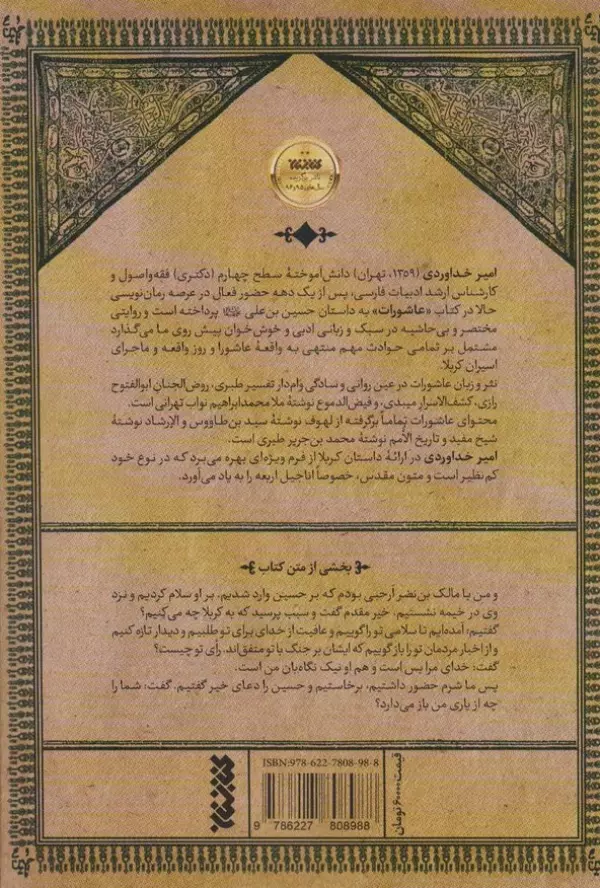 ناشر برگزیده
سال‌های ۹۵ و ۹۶
امیر خداوردی (۱۳۵۹، تهران) دانش‌آموختهٔ سطح چهارم (دکتری) فقه‌واصول و
کارشناس ارشد ادبیات فارسی، پس از یک دهه حضور فعال در عرصه رمان‌نویسی
حالا در کتاب «عاشورات» به داستان حسین بن‌علی پرداخته است و روایتی
مختصر و بی‌حاشیه در سبک و زبانی ادبی و خوش‌خوان پیش روی ما می‌گذارد
مشتمل بر تمامی حوادث مهم منتهی به واقعهٔ عاشورا و روز واقعه و ماجرای
اسیران کربلا.
نثر و زبان عاشورات در عین روانی و سادگی وام‌دار تفسیر طبری، روض‌الجنانِ ابوالفتوح
رازی، کشف‌الاسرار میبدی، و فیض‌الدموع نوشتهٔ ملا محمدابراهیم نواب تهرانی است.
محتوای عاشورات تماماً برگرفته از لهوف، نوشتهٔ سید بن‌طاووس و الإرشاد نوشتهٔ
شیخ مفید و تاریخ الأمم نوشتهٔ محمد بن‌جریر طبری است.
امیر خداوردی در ارائهٔ داستان کربلا از فرم ویژه‌ای بهره می‌برد که در نوع خود
کم‌نظیر است و متون مقدس، خصوصاً اناجیل اربعه را به یاد می‌آورد.
بخشی از متن کتاب
و من با مالک بن‌نضر اَرحبی بودم که بر حسین وارد شدیم، بر او سلام کردیم و نزد
وی در خیمه نشستیم. خیر مقدم گفت و سبب پرسید که به کربلا چه می‌کنیم؟
گفتیم: آمده‌ایم تا سلامی تو را گوییم و عافیت از خدای برای تو طلبیم و دیدار تازه کنیم
و از اخبار مردمان تو را باز گوییم که ایشان بر جنگ با تو متفق‌اند. رأی تو چیست؟
گفت: خدای مرا بس است و هم او نیک نگاه‌بان من است.
پس ما شرم حضور داشتیم، برخاستیم و حسین را دعای خیر گفتیم. گفت: شما را
چه از یاری من باز می‌دارد؟
ISBN: 978-622-7808-98-8
9 786227 808988
قیمت: ۶۰۰۰۰ تومان